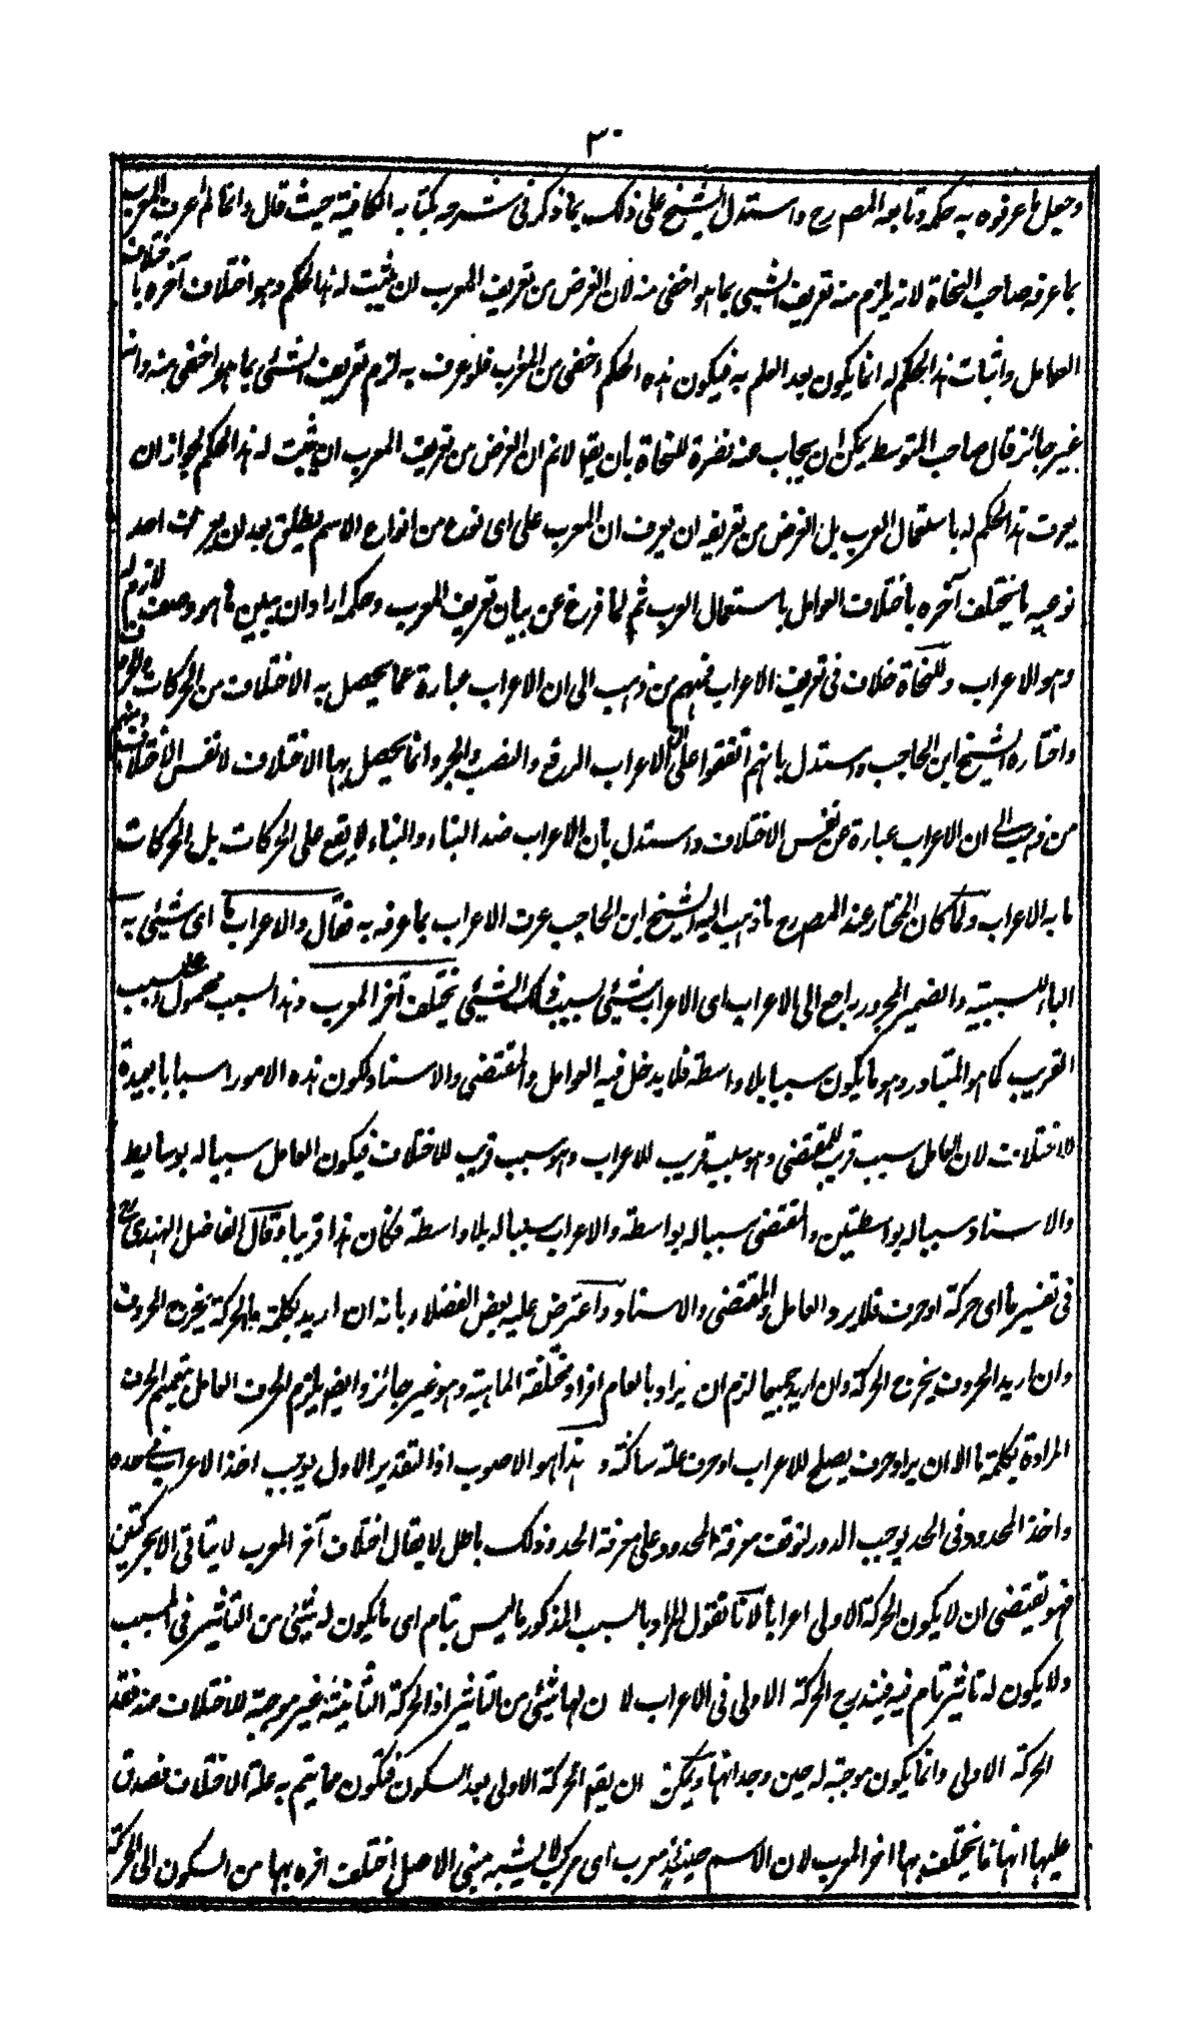 ٣٠
وجعل ما عرفوه به حكمه وتابعه المصرح واستدل الشيخ على ذلك بما ذكر فى شرحه كتابه الكافية حيث قال وانما لم اعرف المعرب
بما عرفه صاحب النحاة لانه يلزم منه تعريف الشيئ بما هو اخفى منه لان الغرض من تعريف المعرب ان يثبت له هذا الحكم وهو اختلاف آخره باختلاف
العوامل واثبات هذا الحكم له انما يكون بعد العلم به فيكون هذه الحكم اخفى من المعرب فلو عرف به لزم تعريف الشيئ بما هو اخفى منه وانه
غير جائز قال صاحب المتوسط يمكن ان يجاب عنه نصرة للنحاة بان يقا لانم ان الغرض من تعريف المعرب ان يثبت له هذا الحكم لجواز ان
يعرف هذا الحكم له باستعمال العرب بل الغرض من تعريفه ان يعرف ان المعرب على اى نوع من انواع الاسم يطلق بعد ان يعرف احد
نوعيه ما يختلف آخره باختلاف العوامل باستعمال العرب ثم لما فرغ عن بيان تعريف المعرب وحكمه اراد ان يبين ما هو وصف لازم له
وهو الاعراب وللنحاة خلاف فى تعريف الاعراب فمنهم من ذهب الى ان الاعراب عبارة عما يحصل به الاختلاف من الحركات والحروف
واختاره الشيخ ابن الحاجب واستدل بانهم اتفقوا على ان الاعراب الرفع والنصب والجر وانما يحصل بها الاختلاف لا نفس الاختلاف ومنهم
من ذهب الى ان الاعراب عبارة عن نفس الاختلاف واستدل بان الاعراب ضد البناء والبناء لا يقع على الحركات بل الحركات
ما به الاعراب ولما كان المختار عند المصرح ما ذهب اليه الشيخ ابن الحاجب عرف الاعراب بما عرفه به فقال والاعراب ما اى شيئ به
الباء للسببية والضمير المجرور راجع الى الاعراب اى الاعراب شيئ بسبب ذلك الشيئ يختلف آخر المعرب وهذا السبب محمول على السبب
القريب كما هو المتبادر وهو ما يكون سببا بلا واسطة فلا يدخل فيه العوامل والمقتضى والاسناد لكون هذه الامور اسبابا بعيدة
للاختلاف لان العامل سبب قريب للمقتضى وهو سبب قريب للاعراب وهو سبب قريب للاختلاف فيكون العامل سببا له بوسايط
والاسناد سببا له بواسطتين والمقتضى سببا له بواسطة والاعراب سببا له بلا واسطة فكان هذا قريبا وقال الفاضل الهندى رح
فى تفسير ما اى حركة او حرف فلا يرد العامل والمقتضى والاسناد واعترض عليه بعض الفضلاء بانه ان اريد بكلمة ما الحركة يخرج الحروف
وان اريد الحروف يخرج الحركة وان اريد جميعا لزم ان يراد بالعام افراد مختلفة الماهية وهو غير جائز وايضا يلزم الحرف العامل بتعميم الحرف
المرادة بكلمة ما الا ان يراد حرف يصلح للاعراب او حرف علة ساكنة و هذا هو الاصوب اذ التقدير الاول يوجب اخذ الاعراب فى حده
واخذ المحدود فى الحد يوجب الدور لتوقف معرفة المحدود على معرفة الحد وذلك باطل لا يقال اختلاف آخر المعرب لا يتأتى الا بحركتين
فهو يقتضى ان لا يكون الحركة الاولى اعرابا لانا نقول المراد بالسبب المذكور ما ليس بتام اى ما يكون له شيئ من التأثير فى المسبب
ولا يكون له تاثير تام فيه فيندرج الحركة الاولى فى الاعراب لا ن لها شيئ من التأثير اذ الحركة الثانية غير موجبة للاختلاف عند فقد
الحركة الاولى وانما يكون موجبة له حين وجدانها ويمكن ان يقع الحركة الاولى بعد السكون فتكون مما يتم به علة الاختلاف فصدق
عليها انها ما يختلف بها اخر المعرب لان الاسم حينئذ معرب اى مركب لا يشبه مبنى الاصل اختلف اخره بها من السكون الى الحركة